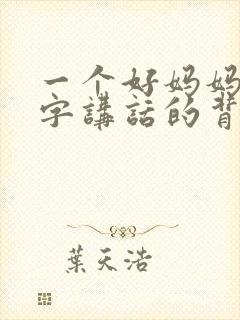 一个好妈妈
字講話的背
葉天浩